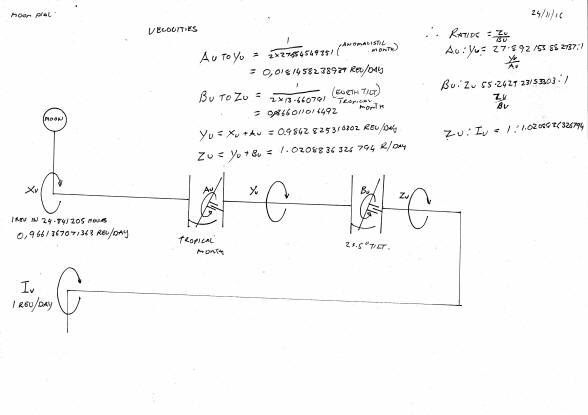 MOON DIAL
24/11/16
VELOCITIES
AU TO YU = 1 / 2×27.554549351 (ANOMALISTIC MONTH)
= 0,018145823893 REV/DAY
BU TO ZU = 1 / 2×13.660791 (EARTH TILT) TROPICAL MONTH
= 0,0366011016492
YU = XU + AU = 0.9862825310202 REV/DAY
ZU = YU + BU = 1.0208836326794 R/DAY
∴ RATIOS = ZU / BU
AU : YU = 27.892155862137:1
YU / AU
BU : ZU 55.2429 23153303 : 1
ZU / BU
ZU : IU = 1 : 1.0208826326794
MOON
XU
1 REV IN 24.841205 HOURS
0,966136707 1363 REV/DAY
AU
TROPICAL MONTH
YU
BU
23.5° TILT.
ZU
IU
1 REV/DAY